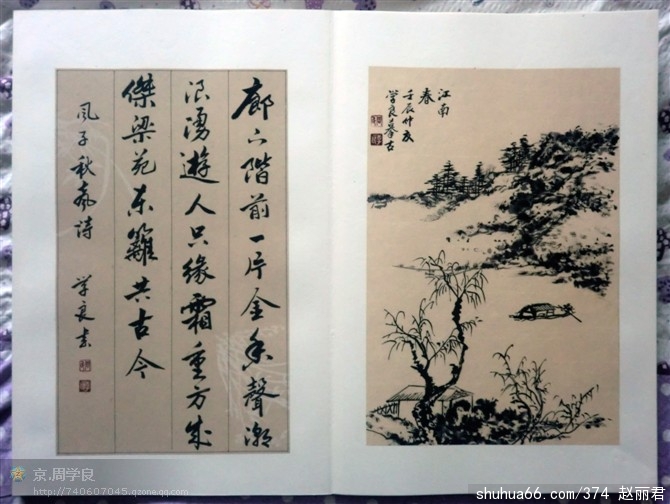 廊下階前一片金香聲潮
浪湧遊人只緣霜重方成
傑梁苑東籬共古今
风子秋 诗 学良書
江南
春
壬辰仲夏
学良摹古
京.周学良
http://740607045.qzone.qq.com
shuhua66.com/374 赵丽君